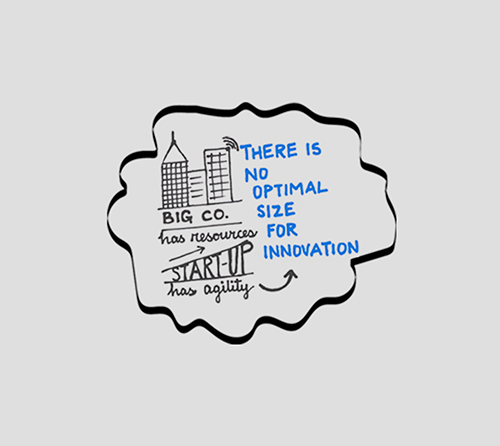 BIG CO.
has resources
START-UP
has agility
THERE IS
NO
OPTIMAL
SIZE
FOR
INNOVATION